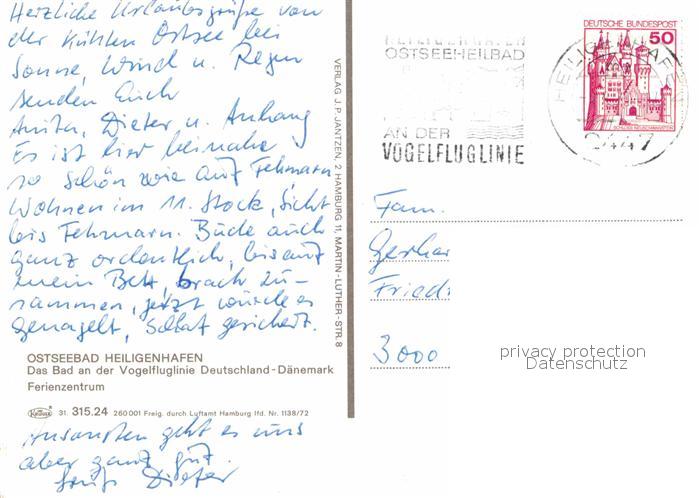 Herzliche Urlaubsgrüße von
der kühlen Ostsee bei
Sonne, Wind u. Regen
senden Euch
Anita, Dieter u. Anhang
Es ist hier beinahe
so schön wie auf Fehmarn.
Wohnen im 11. Stock, Sicht
bis Fehmarn. Bude auch
ganz ordentlich, bis auf
mein Bett, brach zu-
sammen, jetzt wurde es
genagelt, selbst gesichert.
OSTSEEBAD HEILIGENHAFEN
Das Bad an der Vogelfluglinie Deutschland-Dänemark
Ferienzentrum
31. 315.24 260001 Freig. durch Luftamt Hamburg lfd. Nr. 1138/72
Ansonsten geht es uns
aber ganz gut.
Gruß Dieter
VERLAG J. P. JANTZEN, 2 HAMBURG 11, MARTIN-LUTHER-STR. 8
HEILIGENHAFEN
OSTSEEHEILBAD
AN DER
VOGELFLUGLINIE
HEILIGENHAFEN
2447
DEUTSCHE BUNDESPOST
50
SCHLOSS NEUSCHWANSTEIN
Fam.
Gerhar
Friedr
3000
privacy protection
Datenschutz